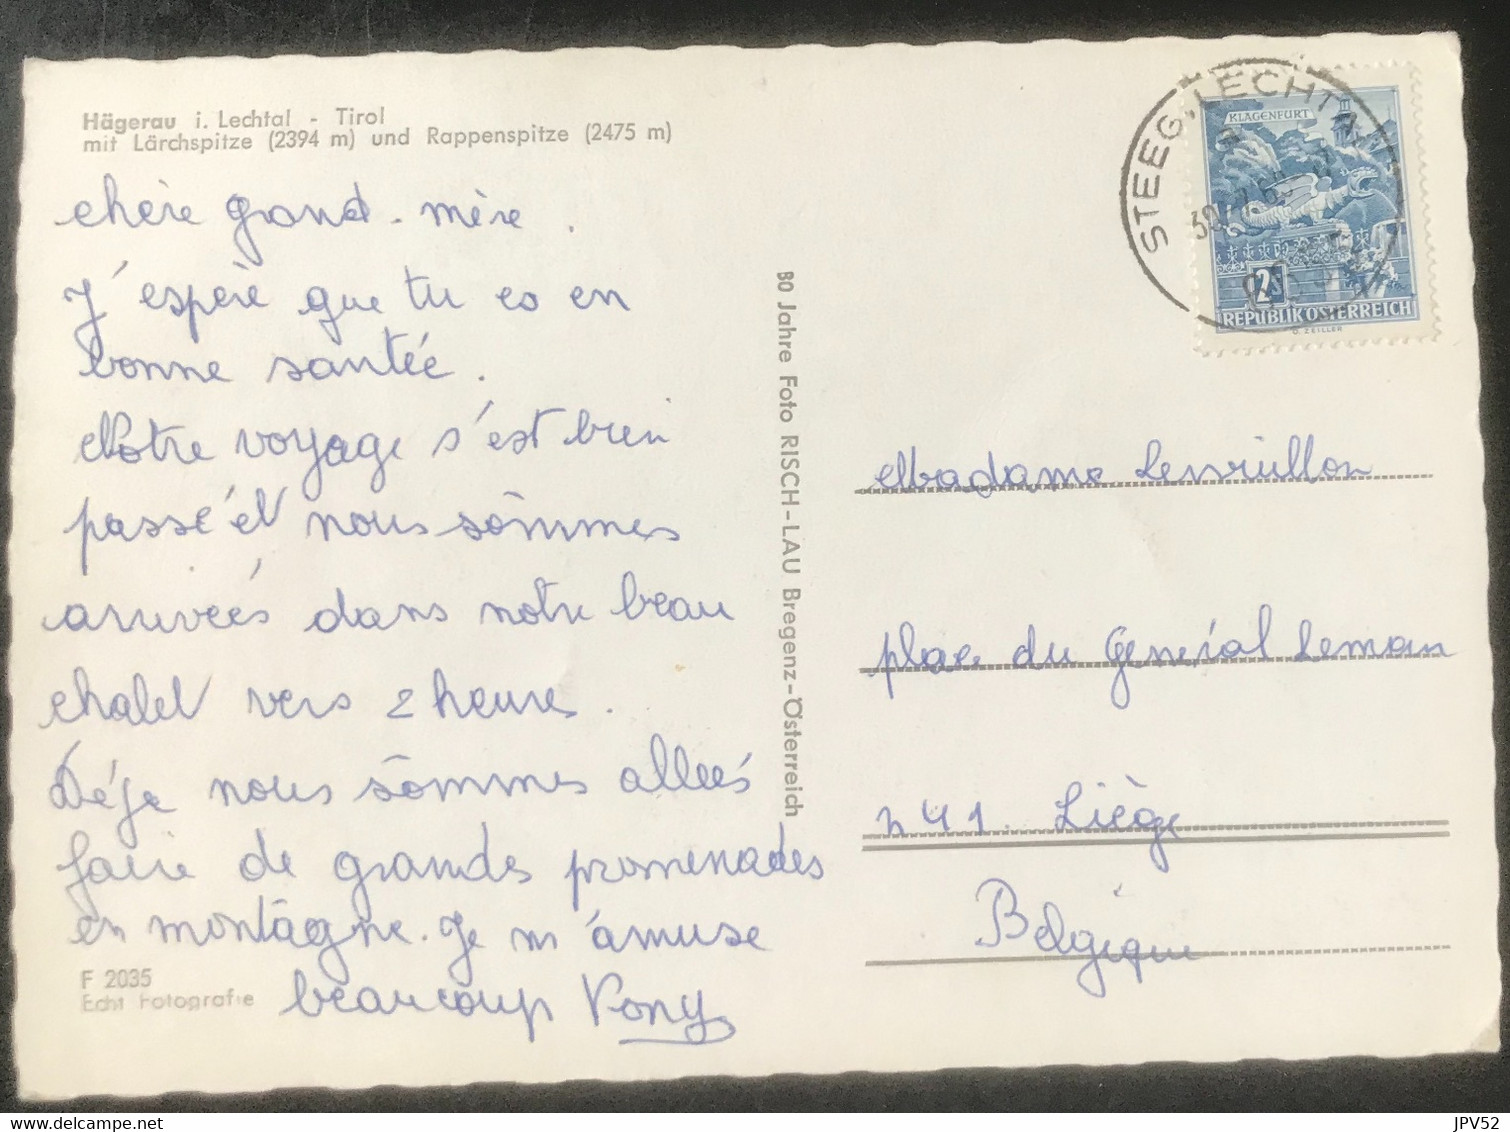 Hägerau i. Lechtal - Tirol
mit Lärchspitze (2394 m) und Rappenspitze (2475 m)
chère grand-mère.
J'espère que tu es en
bonne santée.
Notre voyage s'est bien
passé et nous sommes
arrivées dans notre beau
chalet vers 2 heures.
Déja nous sommes allées
faire de grandes promenades
en montagne. Je m'amuse
beaucoup
F 2035
Echt Fotografie
80 Jahre Foto RISCH-LAU Bregenz-Österreich
STEEG, LECHTAL
KLAGENFURT
2S
REPUBLIK ÖSTERREICH
O. ZEILLER
Madame
place du Général Leman
n 41 Liège
Belgique
delcampe.net
JPV52